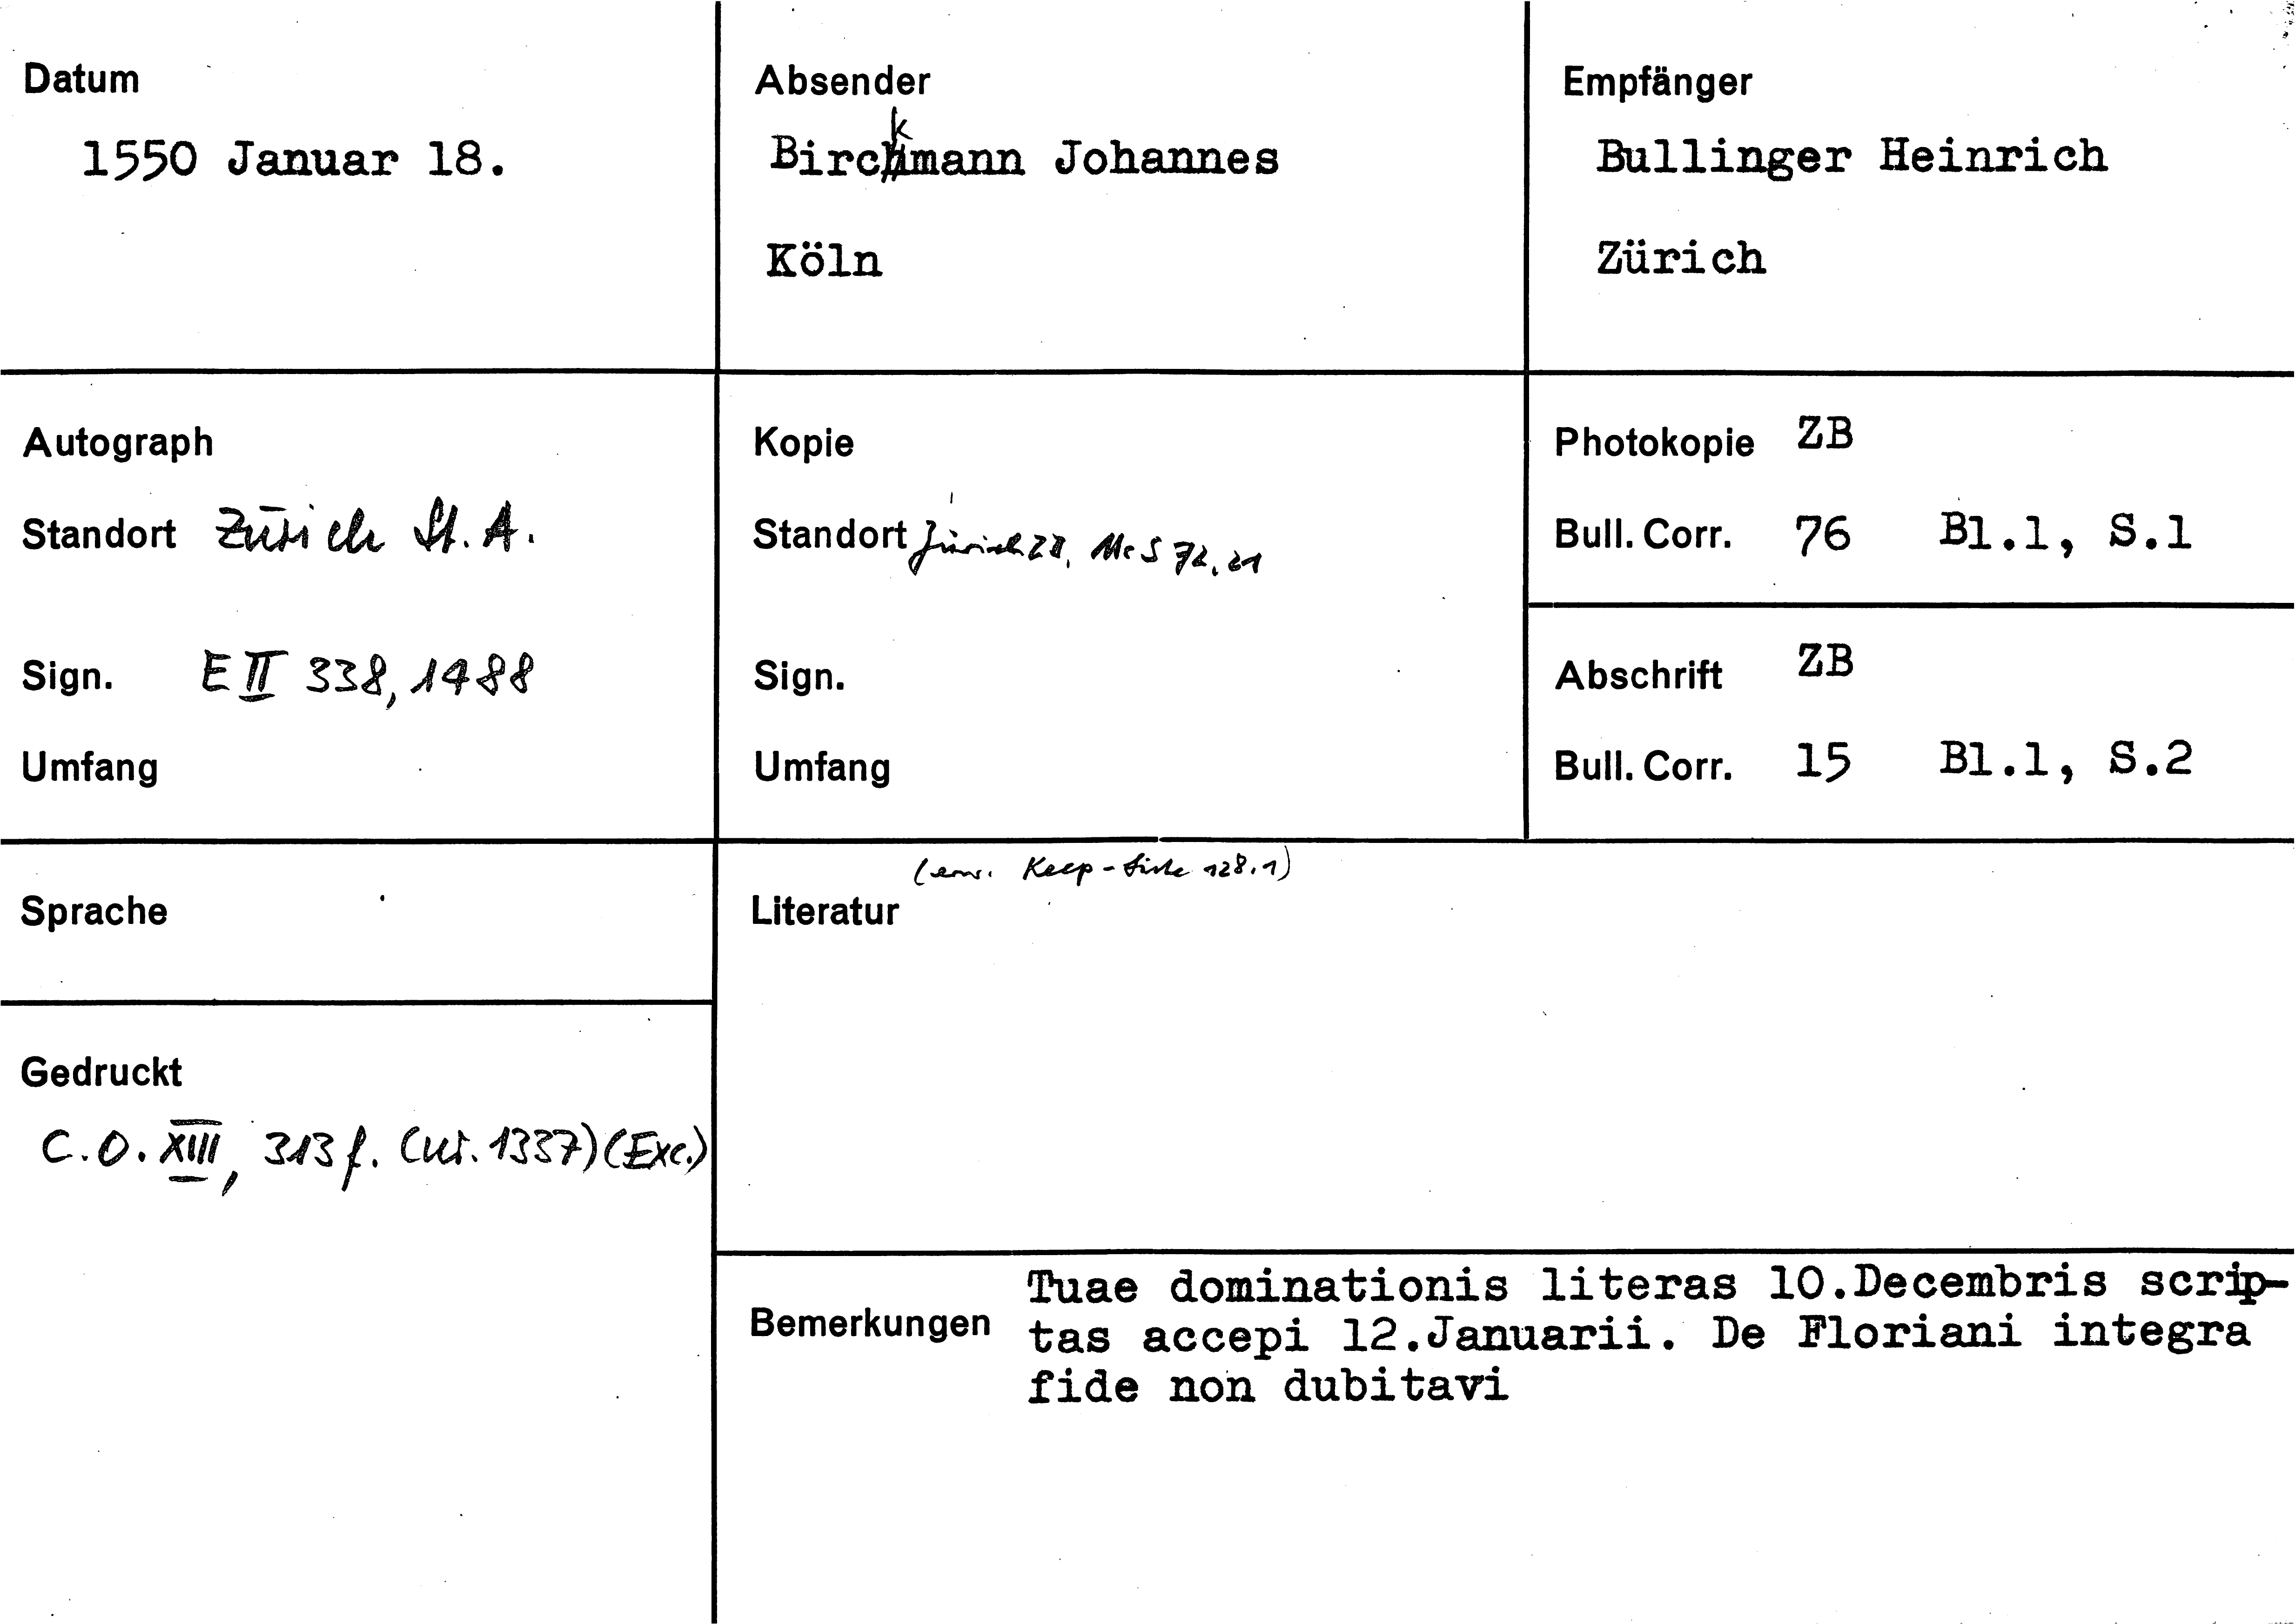 Datum
1550 Januar 18.
Absender
Birckmann Johannes
Köln
Empfänger
Bullinger Heinrich
Zürich
Autograph
Standort Zürich St. A.
Sign. E II 338, 1488
Umfang
Kopie
Standort Zürich ZB, Ms S 72, 21
Sign.
Umfang
Photokopie ZB
Bull. Corr. 76 Bl.1, S.1
Abschrift ZB
Bull. Corr. 15 Bl.1, S.2
Sprache
Gedruckt
C.O. XIII, 313 f. (Nr. 1337) (Exc.)
Keep-Liste 128.1)
Literatur
Bemerkungen
Tuae dominationis literas 10.Decembris scrip-
tas accepi 12.Januarii. De Floriani integra
fide non dubitavi